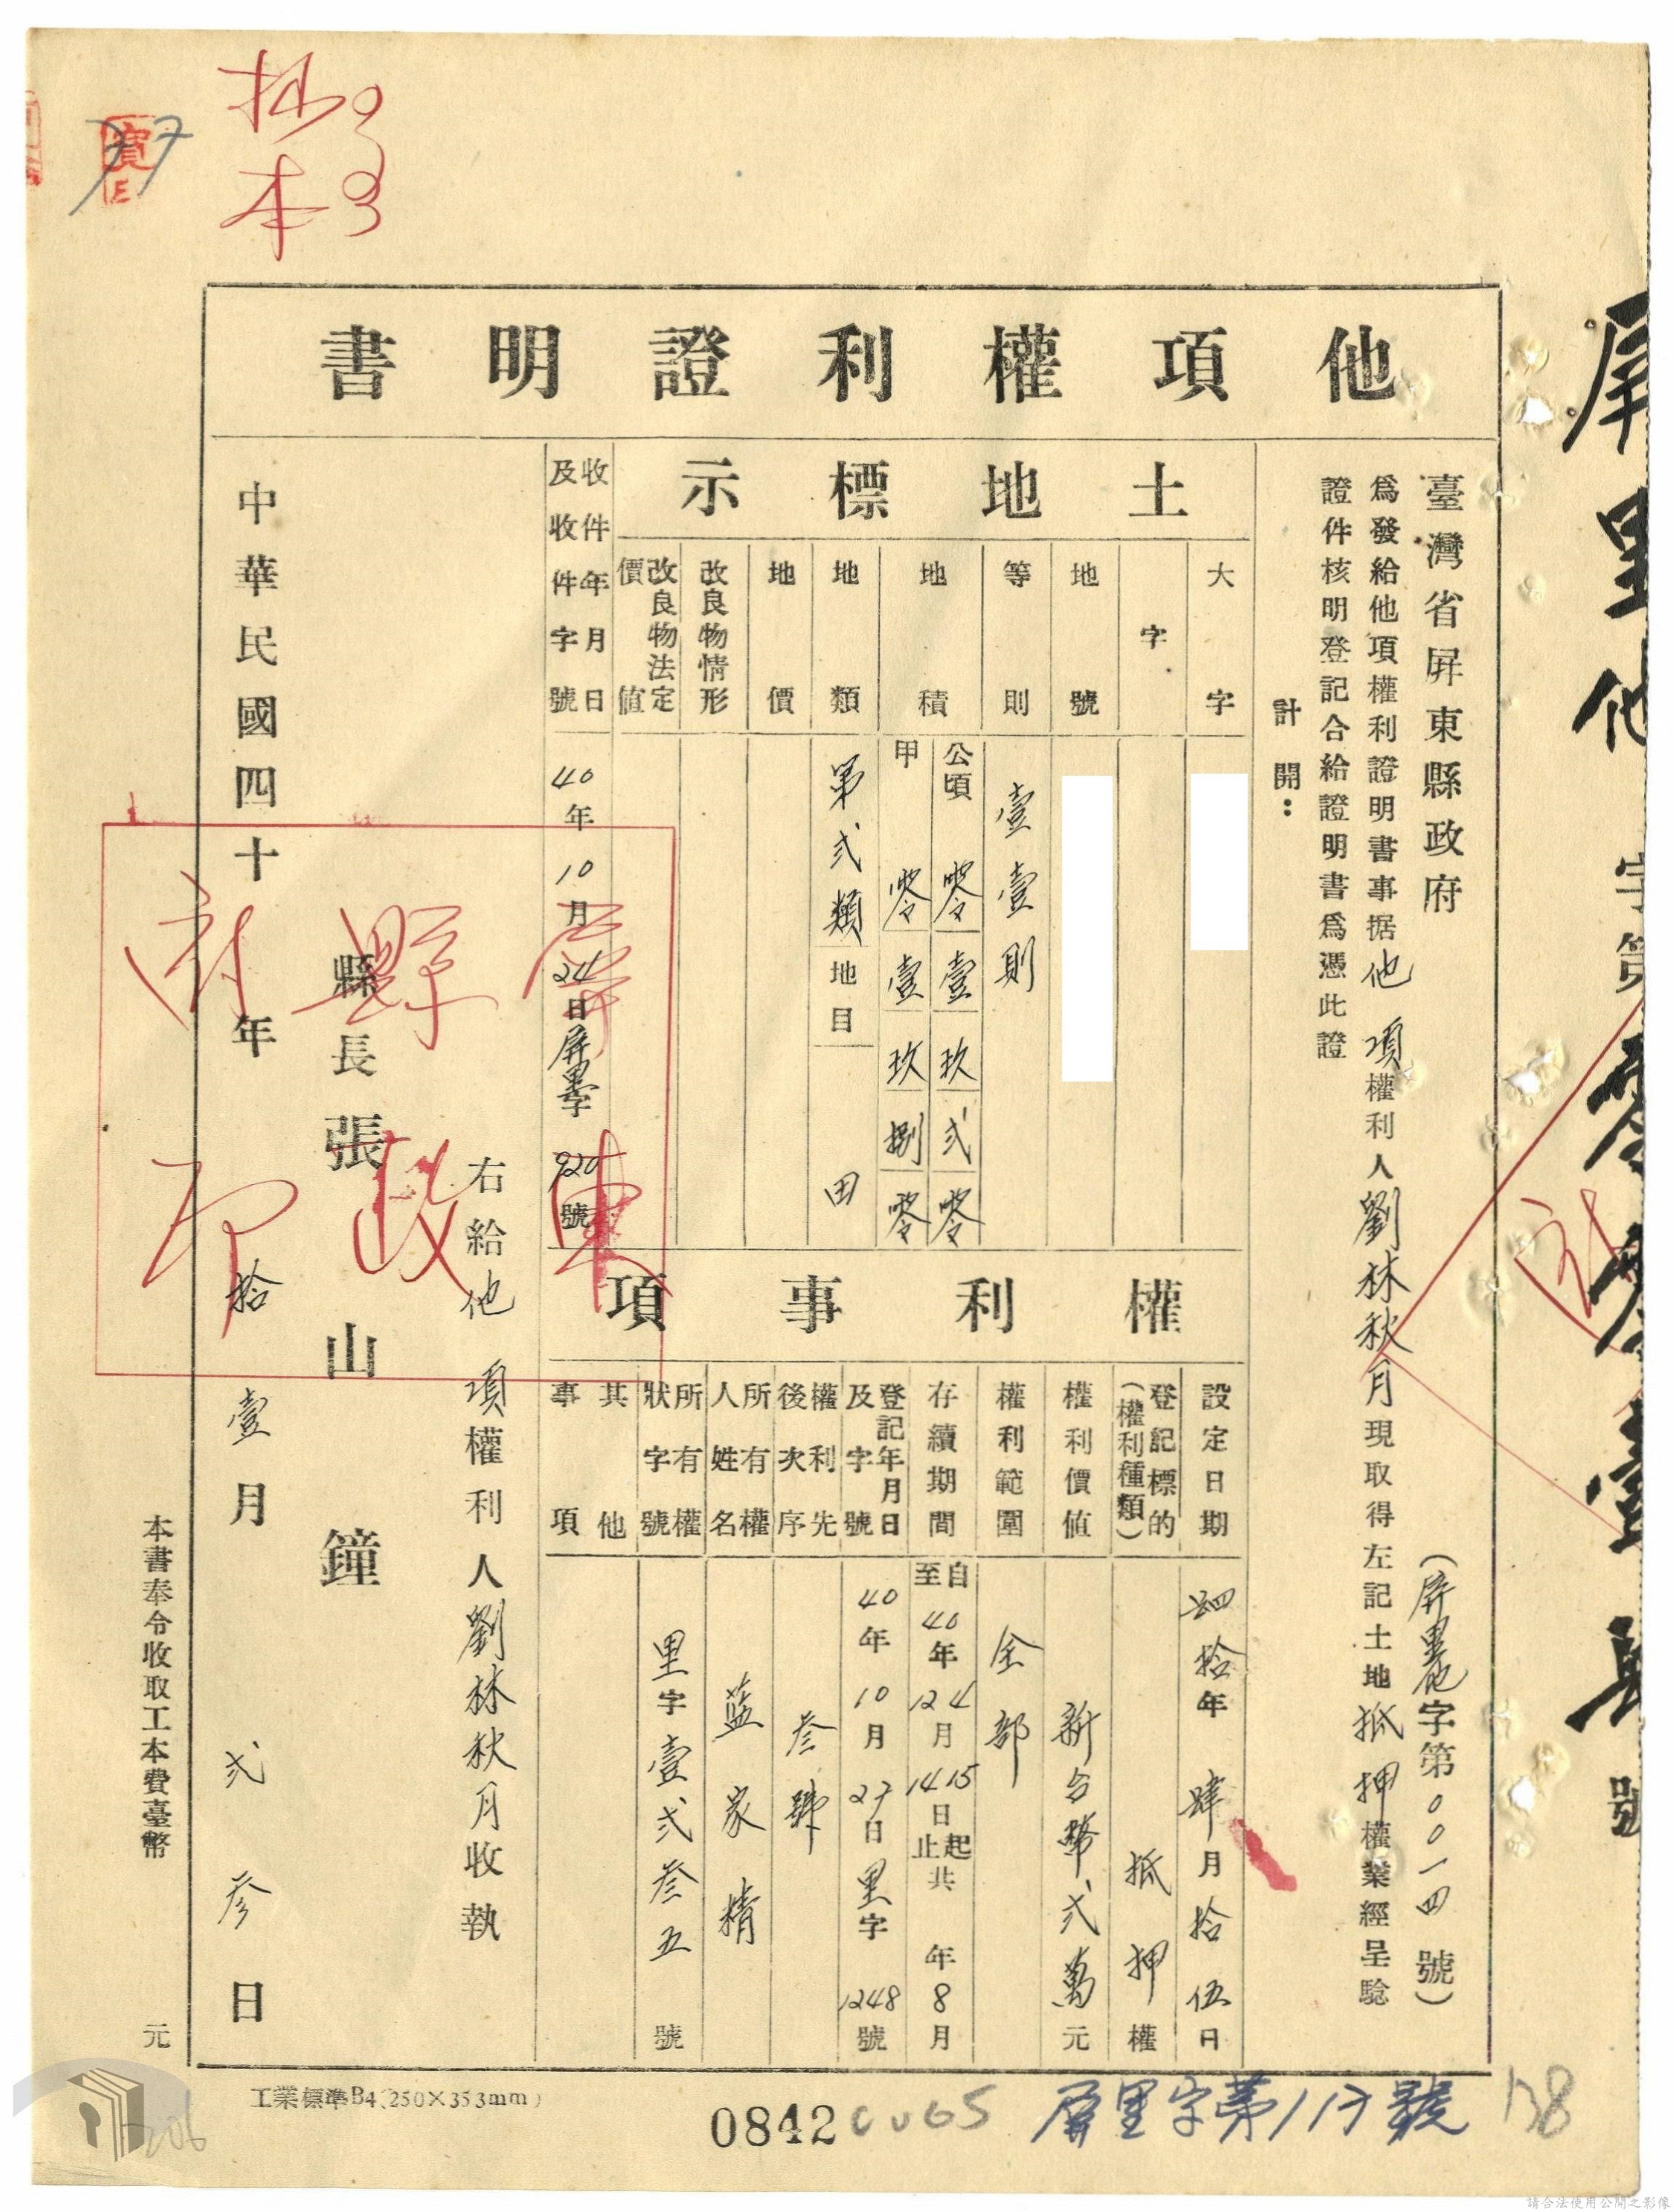 抄本
他項權利證明書
臺灣省屛東縣政府
（屏里他字第００一四號）
爲發給他項權利證明書事据他項權利人劉林秋月現取得左記土地抵押權業經呈驗
證件核明登記合給證明書爲憑此證
計開：
土地標示
大字
字
地號
等則
壹壹則
地積
公頃
零壹玖弍零
甲
零壹玖捌零
地類
第弍類地目
田
地價
改良物情形
改良物法定價值
收件年月日及收件字號
40年10月24日屏里字920號
權利事項
設定日期
四拾年肆月拾伍日
登記標的（權利種類）
抵押權
權利價値
新台幣弍萬元
權利範圍
全部
存續期間
自40年4月15日起
至40年12月14日止
共年8月
登記年月日及字號
40年10月27日里字1248號
權利先後次序
叁號
所有權人姓名
藍家精
所有權狀字號
里字壹弍叁五號
其他事項
右給他項權利人劉林秋月收執
縣長張山鐘
屏東縣政府印
中華民國四十年拾壹月弍叄日
本書奉令收取工本費臺幣元
工業標準B4(250×353mm)
0842
0065
屏里字第117號
138
206
屏里他字第零零壹號
請合法使用公開之影像